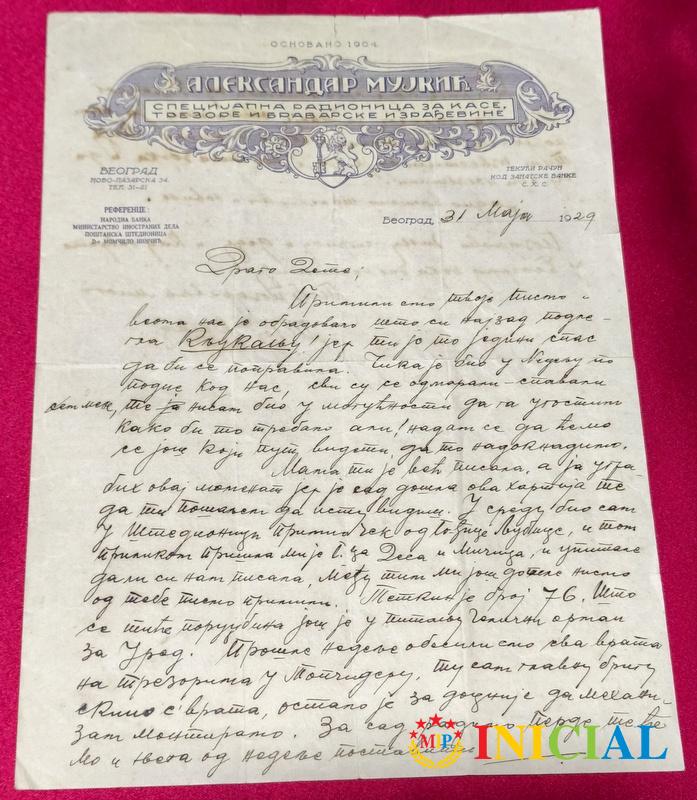 ОСНОВАНО 1904
АЛЕКСАНДАР МУЈКИЋ
СПЕЦИЈАЛНА РАДИОНИЦА ЗА КАСЕ,
ТРЕЗОРЕ И БРАВАРСКЕ ИЗРАЂЕВИНЕ
БЕОГРАД
НОВО-ПАЗАРСКА 34.
ТЕЛ. 31-21
ТЕКУЋИ РАЧУН
КОД ЗАНАТСКЕ БАНКЕ
С. Х. С.
РЕФЕРЕНЦЕ:
НАРОДНА БАНКА
МИНИСТАРСТВО ИНОСТРАНИХ ДЕЛА
ПОШТАНСКА ШТЕДИОНИЦА
Д-р МОМЧИЛО НИНЧИЋ
Београд, 31 Маја 1929
Драго Дете;
Примили смо твоје писмо и
веома нас је обрадовало што си најзад
јер ти је то једини спас
да би се поправила. Чика је био у Недељу по
подне код нас, сви су се одмарали - спавали
те ја нисам био у могућности да га угостим
како би то требало али! надам се да ћемо
се још који пут видети, да то надокнадимо.
Мама ти је већ писала, а ја
бих овај моменат јер је сад дошла ова хартија те
да ти пошаљем да исту видиш. У среду био сам
у Штедионици од Љубице, и том
приликом пришла ми је Г. за Деса и Мицица, и упитале
да ли си нам писала, Међу тим ми још до сле нисмо
од тебе писмо примили. је број 76. Што
се тиче поруџбина још је у питању челични орман
за Уред. Прошле недеље обесили смо сва врата
на трезорима у Топчидеру, ту сам главну бригу
скино с' врата, остало је за доцније да механи-
зам монтирамо. За сад те ће
мо и њега од недеље
MP INICIAL